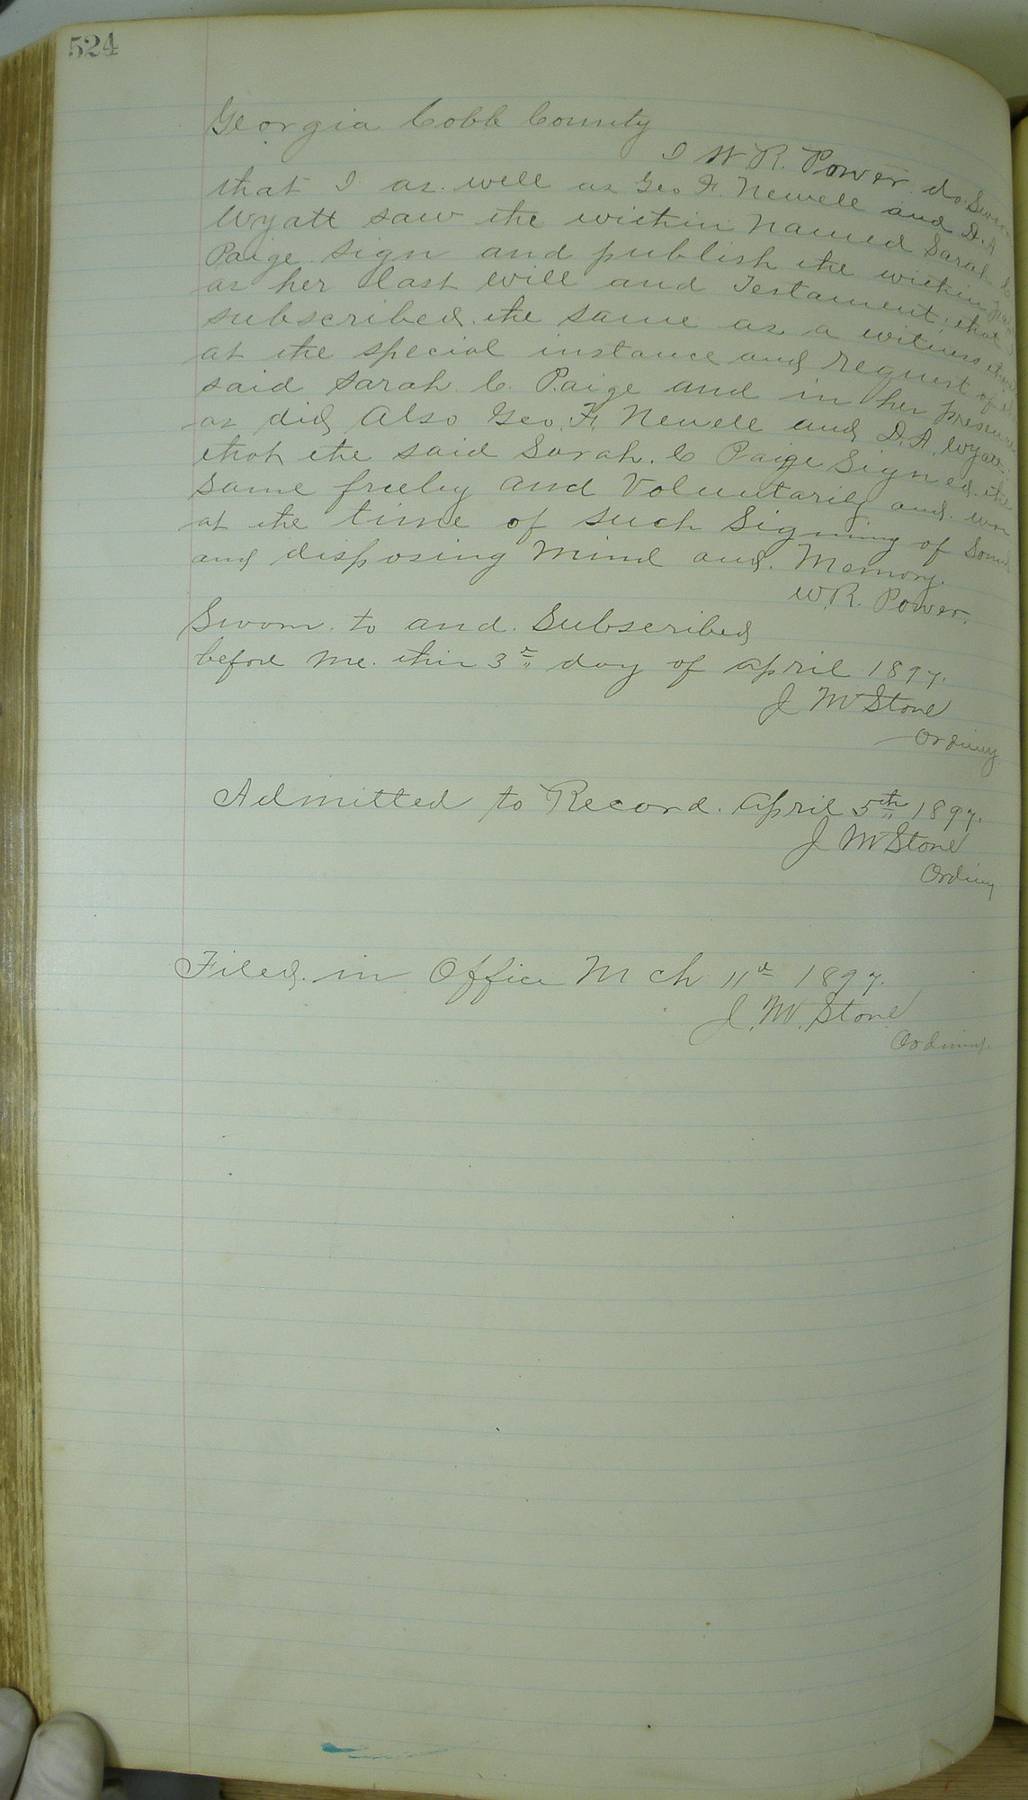 524
Georgia Cobb County
I W R. Power do Swear
that I as well as Geo F. Newell and D. A
Wyatt saw the within named Sarah C
Paige sign and publish the within
as her last will and Testament, that I
subscribed the same as a witness
at the special instance and request of
said Sarah C. Paige and in her presence
as did Also Geo. F. Newell and D. A. Wyatt.
that the said Sarah. C Paige Signed the
same freely and Voluntarily and was
at the time of such Signing of Sound
and disposing mind and. Memory.
W. R. Power.
Sworn to and. Subscribed
before me. this 3rd day of April 1897.
J M Stone
Ordinary
Admitted to Record. April 5th 1897.
J M Stone
Ordinary
Filed. in Office Mch 11th 1897.
J. M. Stone
Ordinary